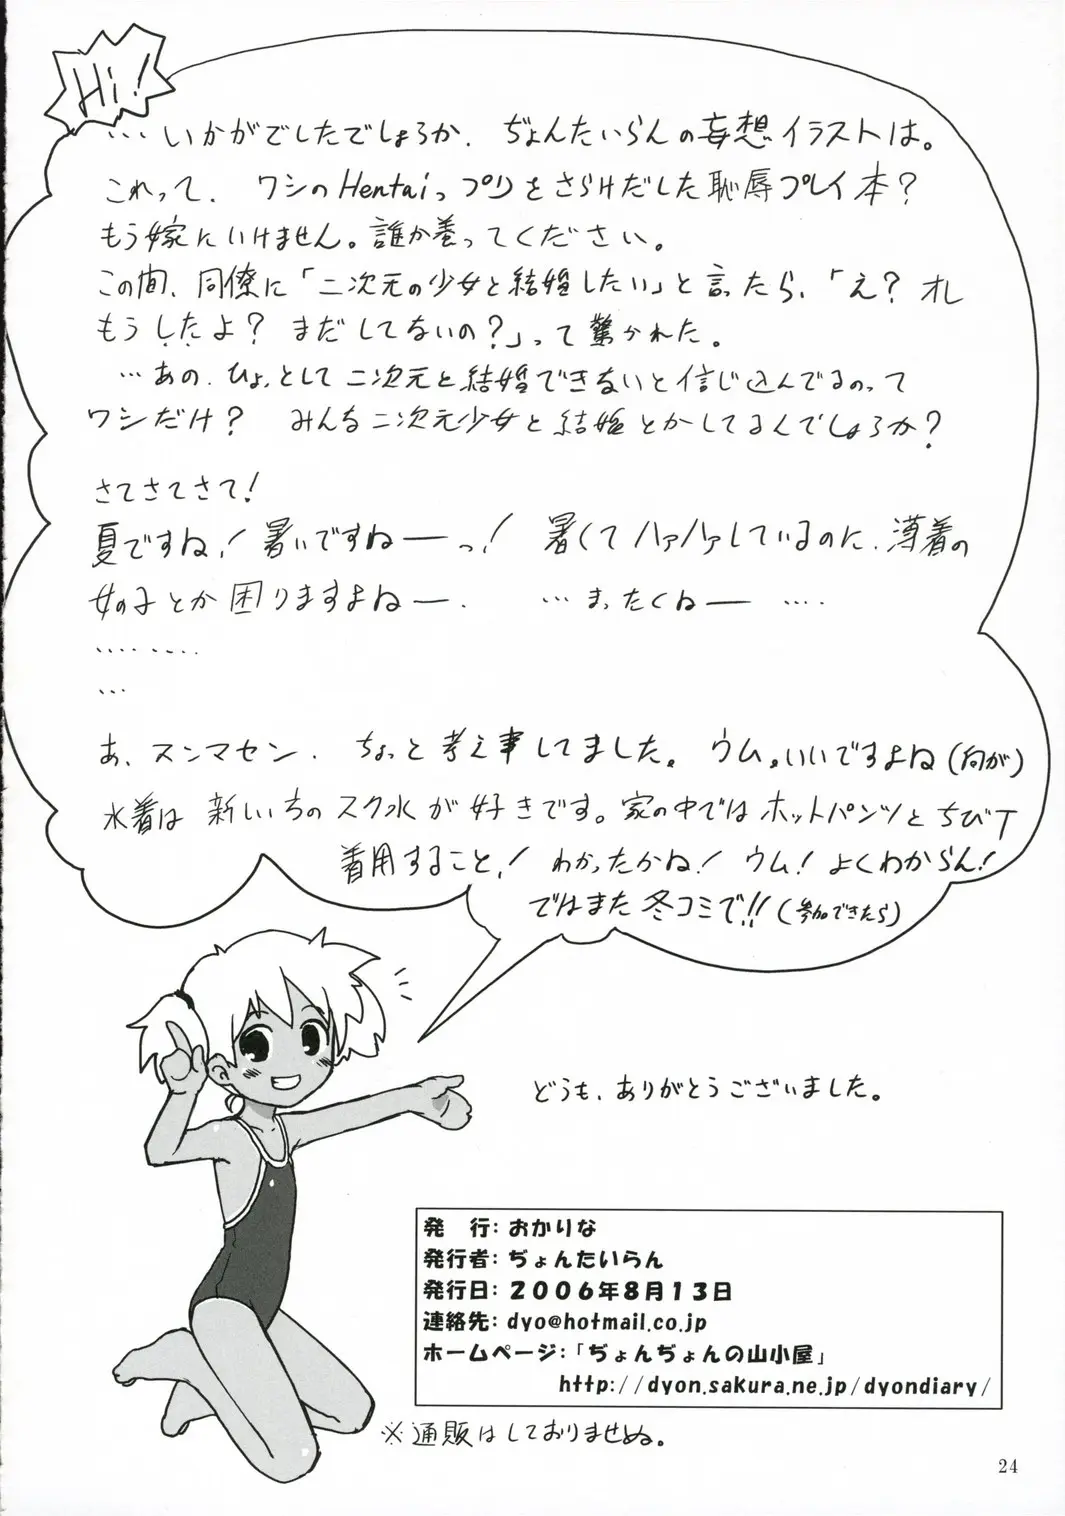 Hi!
…いかがでしたでしょうか、ぢょんたいらんの妄想イラストは。
これって、ワシのHentaiっプリをさらけだした恥辱プレイ本?
もう嫁にいけません。誰か養ってください。
この間、同僚に「二次元の少女と結婚したい」と言ったら、「え?オレ
もうしたよ?まだしてないの?」って驚かれた。
…あの、ひょっとして二次元と結婚できないと信じ込んでるのって
ワシだけ?みんな二次元少女と結婚とかしてるんでしょうか?
さてさてさて!
夏ですね!暑いですねーっ!暑くてハァハァしているのに、薄着の
女の子とか困りますよねー、…まったくねー….
………
…
あ、スンマセン、ちょっと考え事してました。ウム。いいですよね(何が)
水着は新しいちのスク水が好きです。家の中ではホットパンツとちびT
着用すること!わかったかね!ウム!よくわからん!
ではまた冬コミで!!(参加できたら)
どうも、ありがとうございました。
発 行:おかりな
発行者:ぢょんたいらん
発行日:2006年8月13日
連絡先:dyo@hotmail.co.jp
ホームページ:「ぢょんぢょんの山小屋」
http://dyon.sakura.ne.jp/dyondiary/
※通販はしておりませぬ。
24